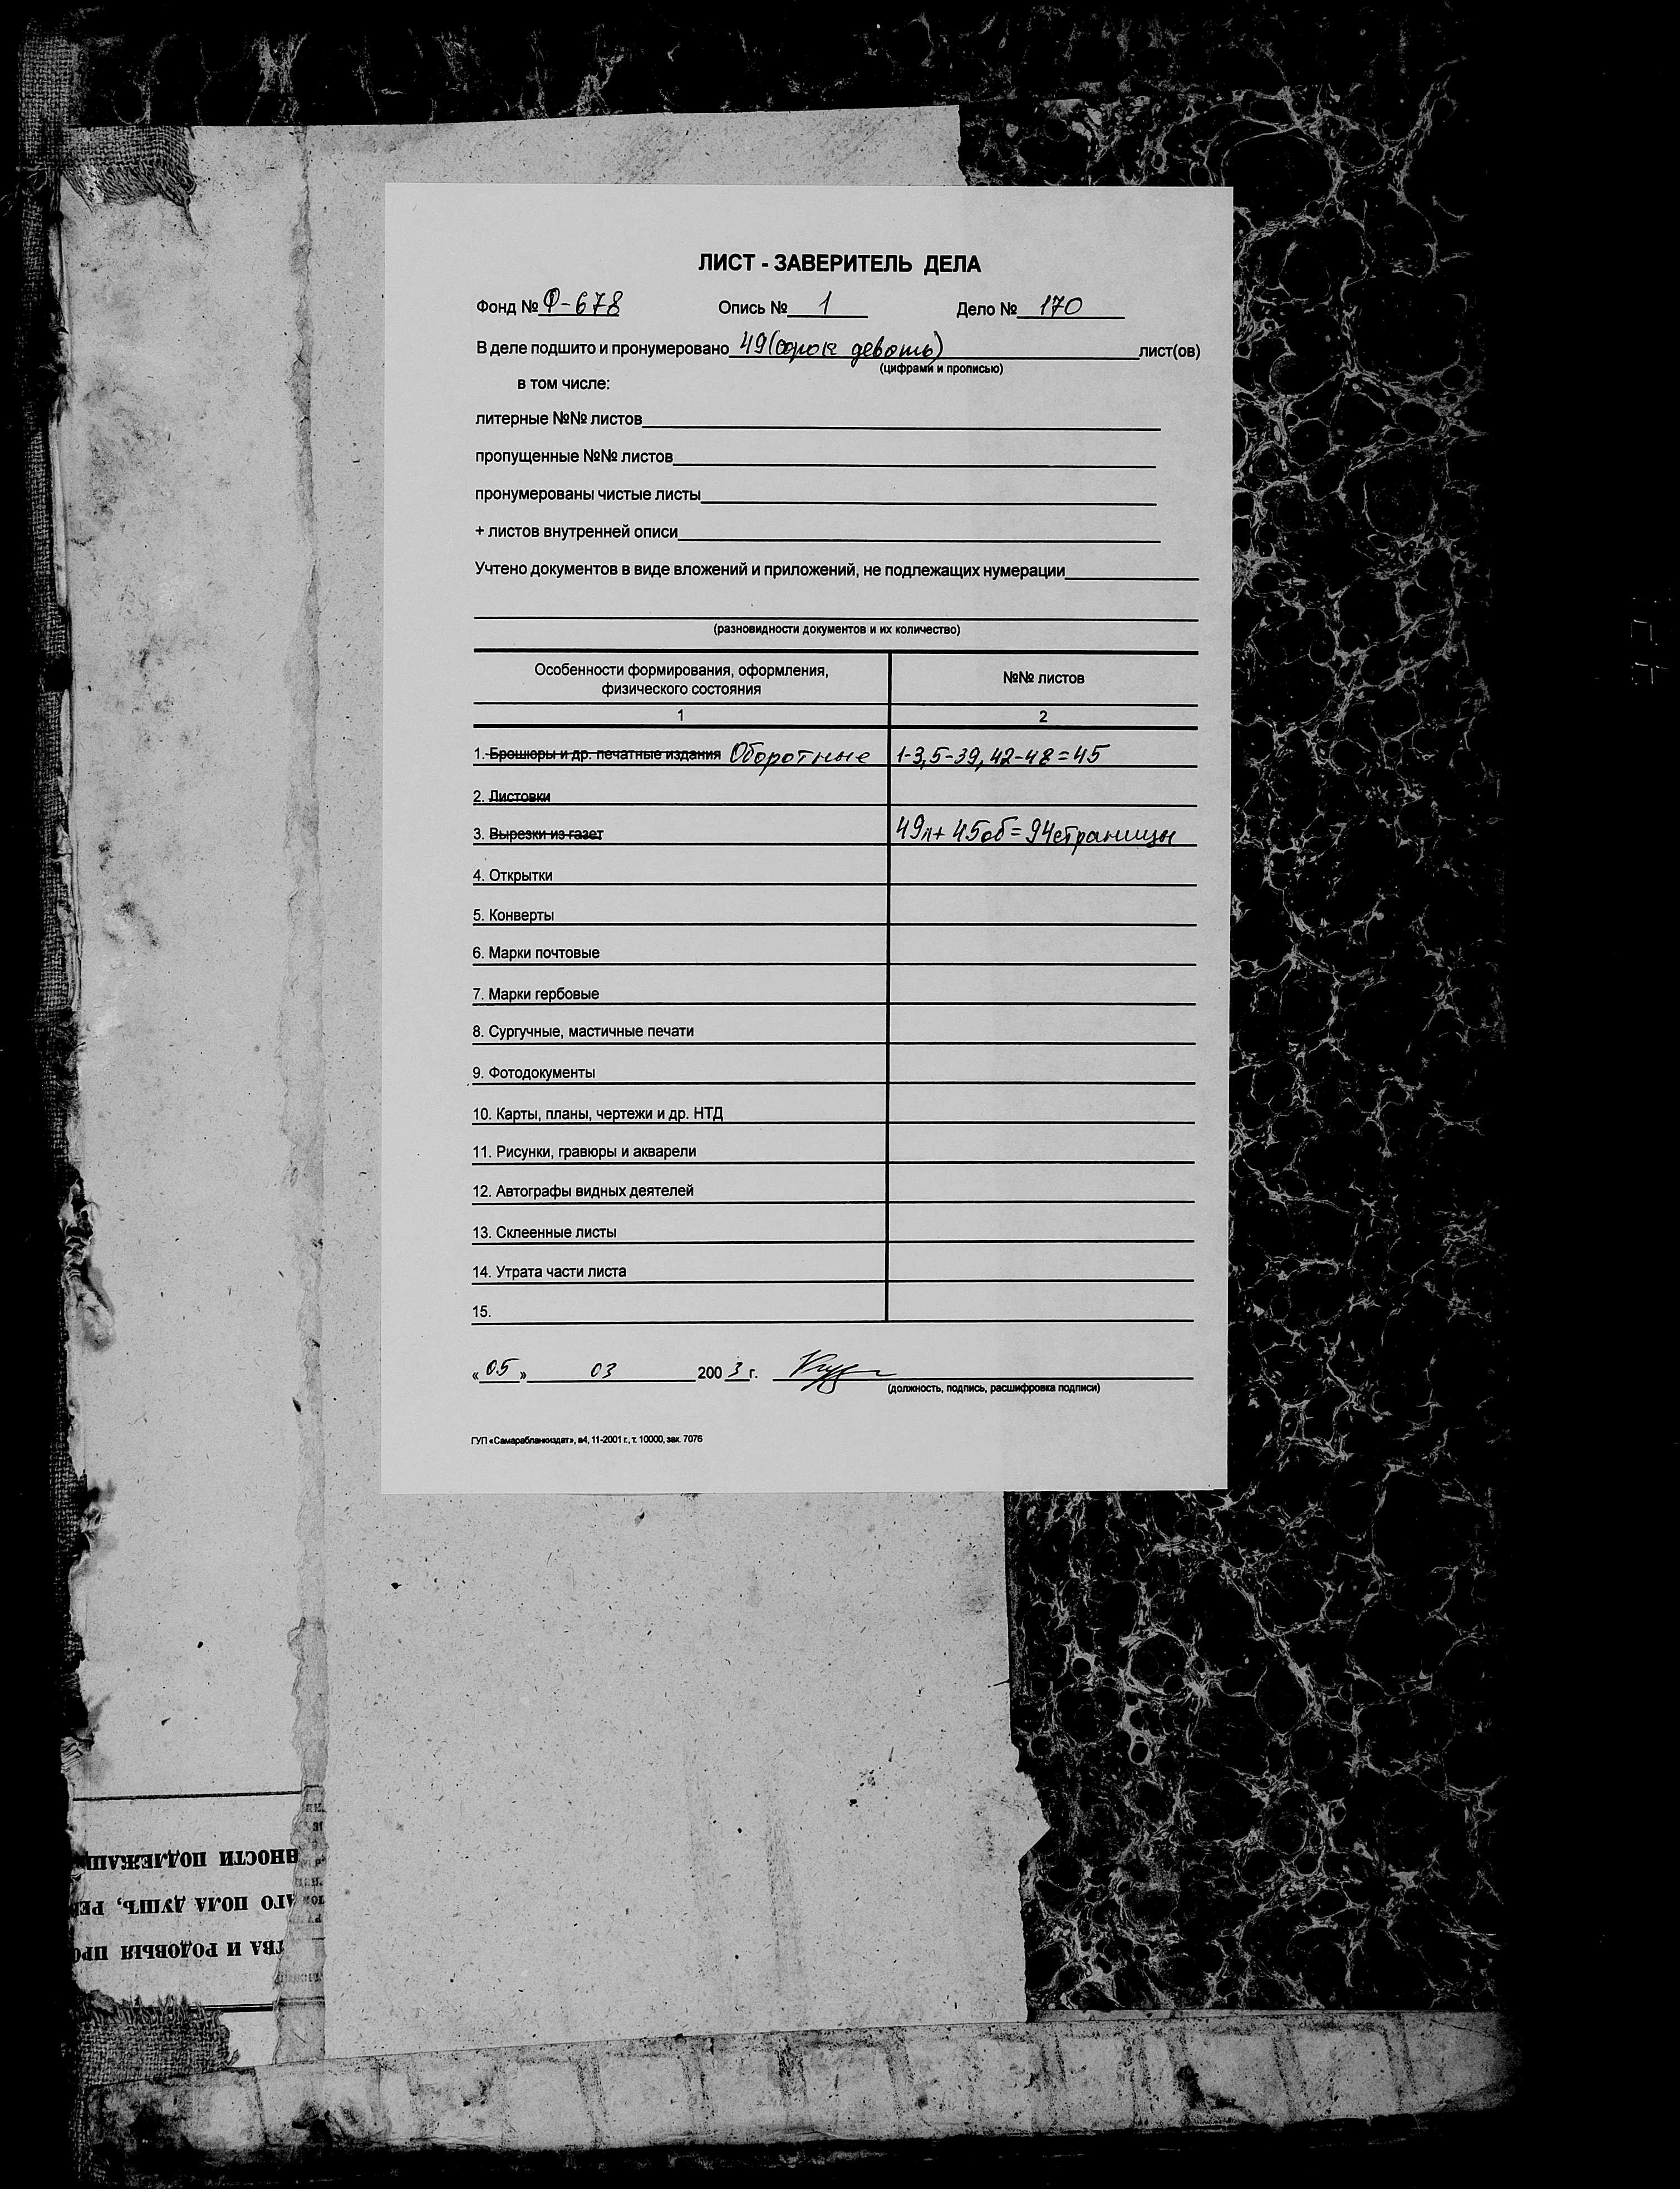 ЛИСТ - ЗАВЕРИТЕЛЬ ДЕЛА
Фонд № Ф-678 Опись № 1 Дело № 170
В деле подшито и пронумеровано 49 (сорок девять) лист(ов)
(цифрами и прописью)
в том числе:
литерные №№ листов
пропущенные №№ листов
пронумерованы чистые листы
+ листов внутренней описи
Учтено документов в виде вложений и приложений, не подлежащих нумерации
(разновидности документов и их количество)
Особенности формирования, оформления, физического состояния №№ листов
1 2
1. Брошюры и др. печатные издания Оборотные 1-3, 5-39, 42-48 = 45
2. Листовки
3. Вырезки из газет 49л + 45об = 94 страницы
4. Открытки
5. Конверты
6. Марки почтовые
7. Марки гербовые
8. Сургучные, мастичные печати
9. Фотодокументы
10. Карты, планы, чертежи и др. НТД
11. Рисунки, гравюры и акварели
12. Автографы видных деятелей
13. Склеенные листы
14. Утрата части листа
15.
« 05 » 03 2003 г.
(должность, подпись, расшифровка подписи)
ГУП «Самарабланкиздат», а4, 11-2001 г., т. 10000, зак. 7076
ТВА И РОДОВЫЯ ПРО
АГО ПОЛА ДУШЪ, РЕ
ННОСТИ ПОДЛЕЖАЩ